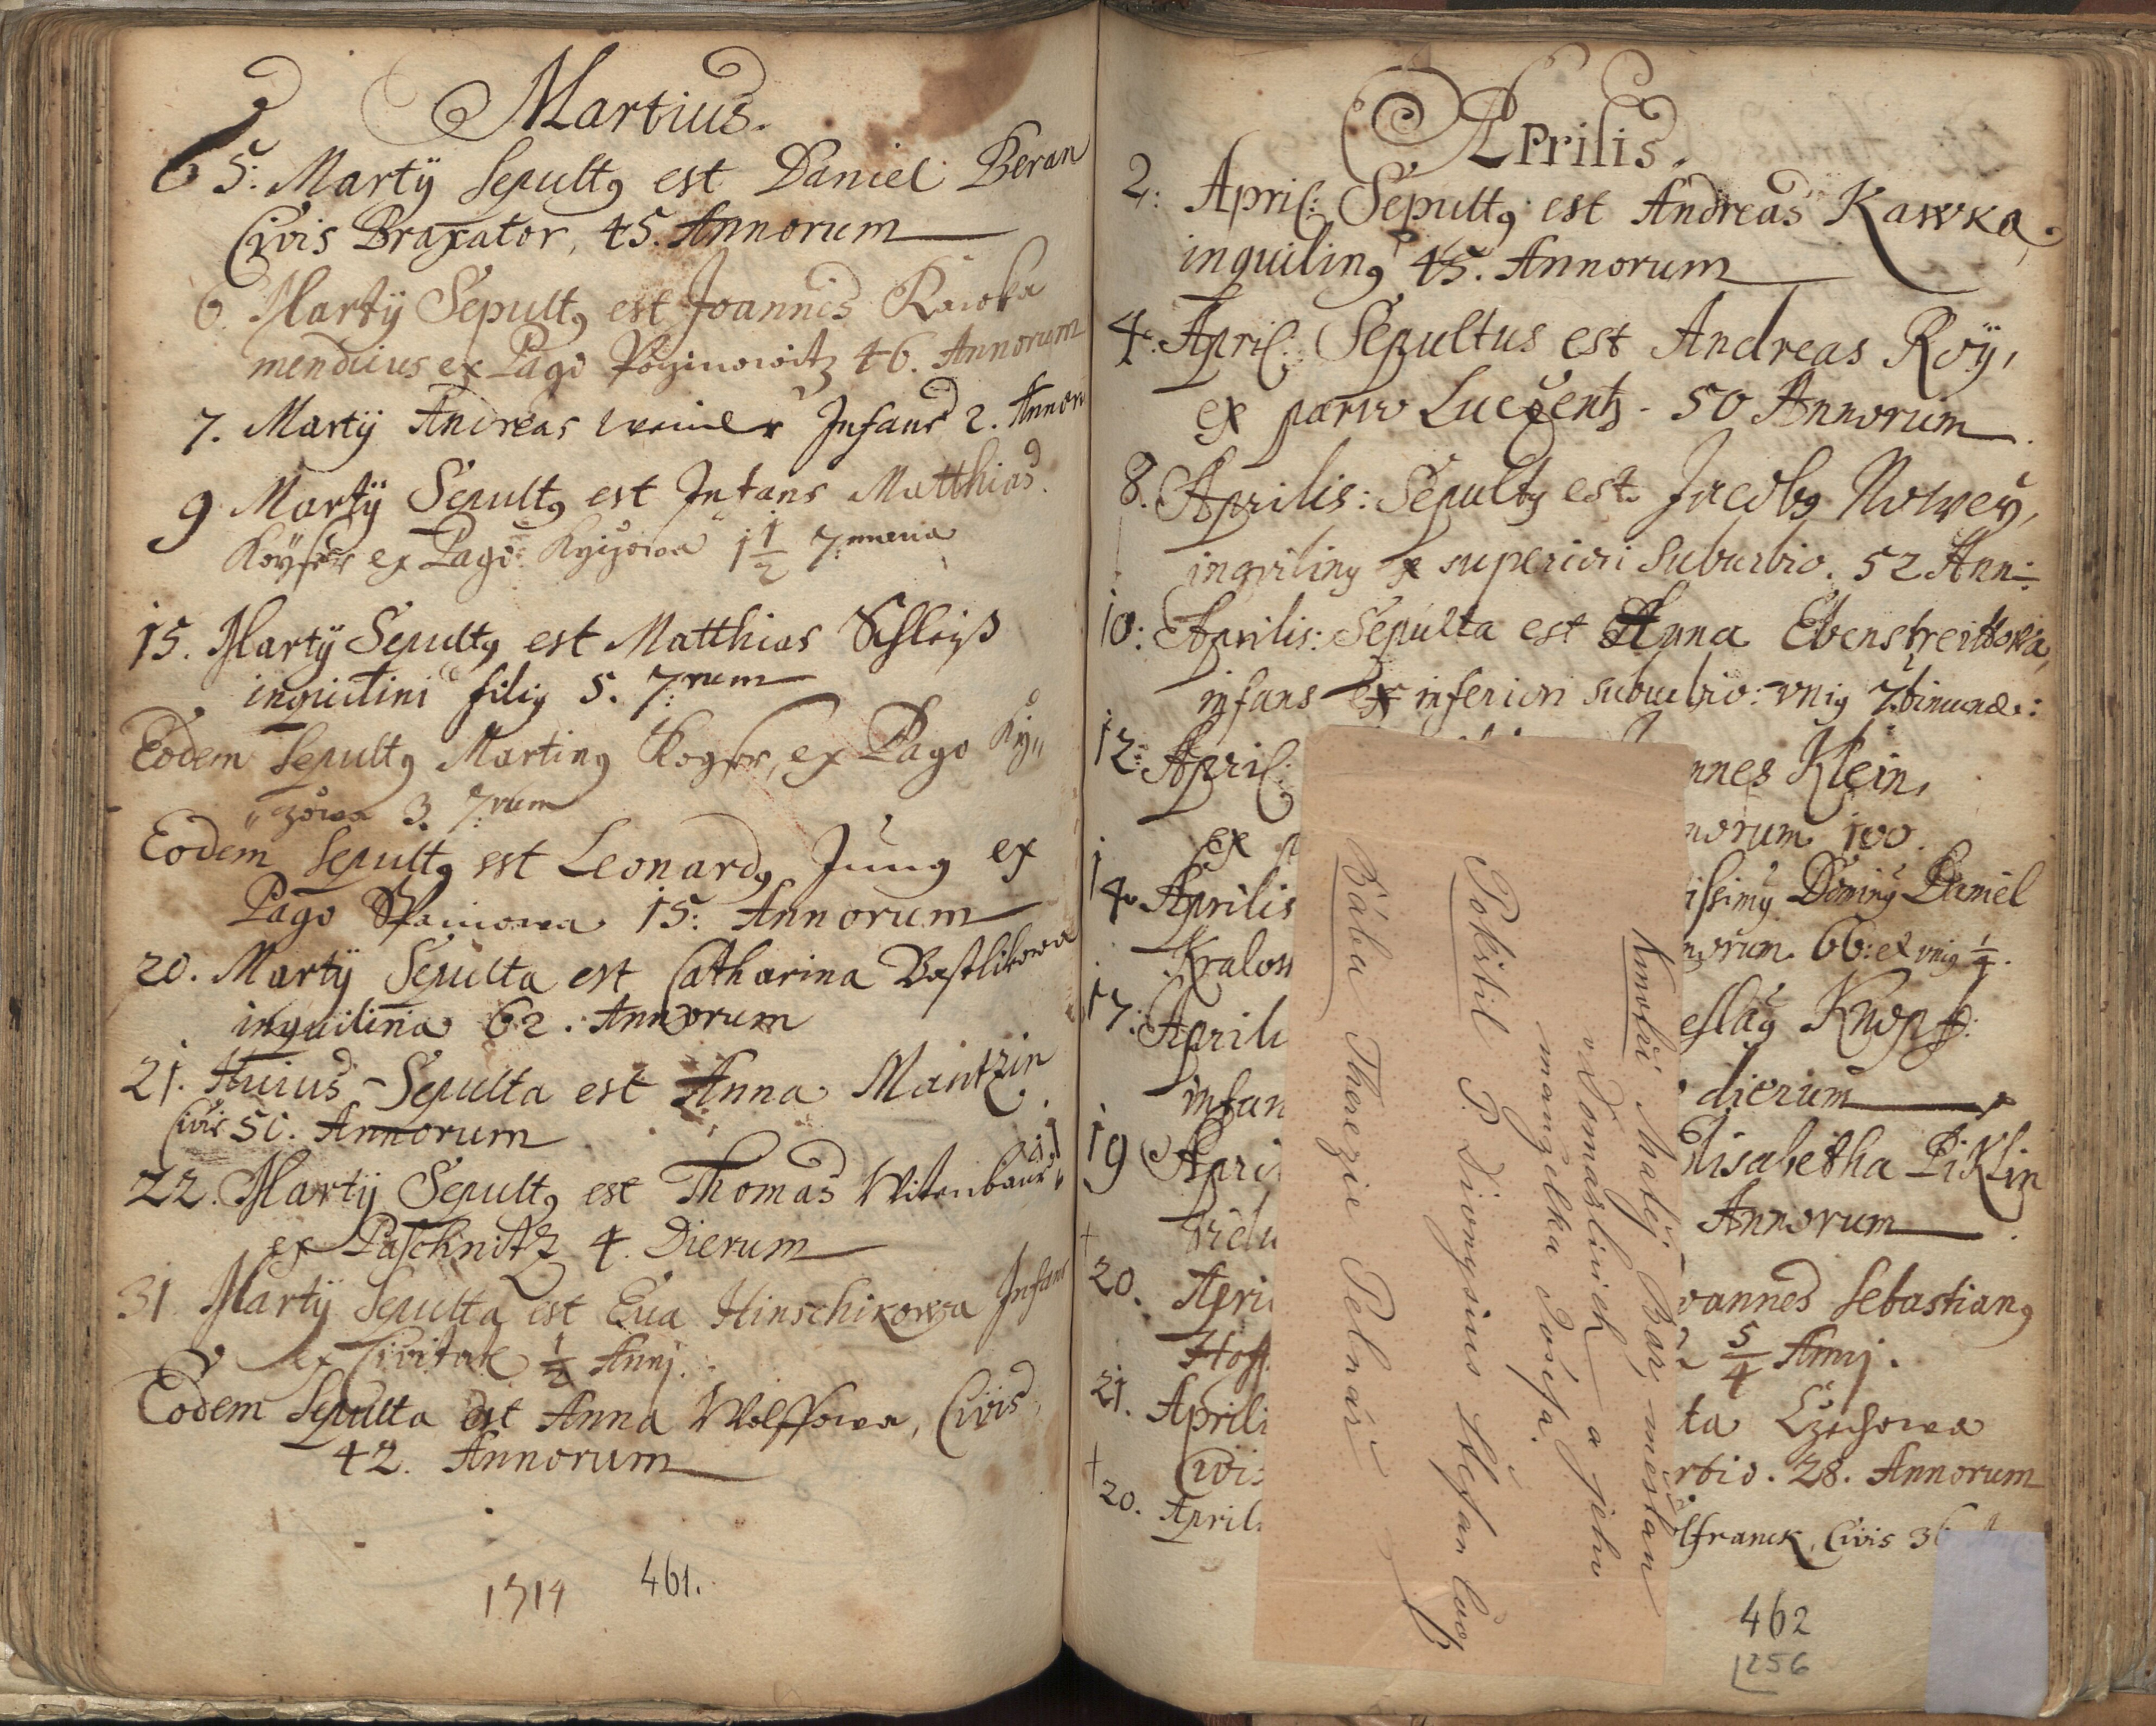 Martius.
5: Martÿ Sepultꝯ est Daniel Beran
Civis Braxator, 45. Annorum
6. Martÿ Sepultꝯ est Joannes
mendicus ex Pago 46. Annorum
7. Martÿ Andreas Infans 2. Annor
9 Martÿ Sepultꝯ est Infans Matthias
ex Pago 1 1/2 7:
15. Martÿ Sepultꝯ est Matthias Schleiß
inquilini filiꝯ 5. 7:num
Eodem Sepultꝯ Martinꝯ ex Pago Ky„
„zowa 3. 7:num
Eodem Sepultꝯ est Leonardꝯ Jung ex
Pago 15: Annorum
20. Martÿ Sepulta est Catharina Bastlikowa
inquilina 62. Annorum
21. Huius Sepulta est Anna Mantzin
Civis 51. Annorum
22. Martÿ Sepultꝯ est Thomas Witenbaur„
ex Paschnitz 4. Dierum
31 Martÿ Sepulta est Eua Hinschikowa Infans
ex Civitate 1/2 Annj.
Eodem Sepulta est Anna Wolffowa, Civis
42. Annorum
1714 461.
Aprilis.
2: April: Sepultꝯ est Andreas Kawka,
inquilinꝯ 45. Annorum
4: April: Sepultus est Andreas Roÿ,
ex parvo Luczentz. 50 Annorum
8. Aprilis: Sepultꝯ est Jacobꝯ Nowey,
inqvilinꝯ ex superiori suburbio. 52 Ann:
10: Aprilis: Sepulta est Anna Ebenstreittowa,
infans ex inferiori suburbio: vniꝯ
12: April: nnes Klein,
ex norum 100.
14. Aprilis issimꝯ Dominꝯ Daniel
Kralow norum. 66: et vniꝯ 1/4.
17: Aprili eslaꝯ Knopf:
infan dierum
19 Apri lisabetha Piklin
vidu Annorum
20. Apri oannes Sebastianꝯ
Hoff 5/4 Annj.
21. Aprili ta Czechowa
Civis rbio. 28. Annorum
20. April lfranck, Civis 36
Kmotři Matěj Bar, měšťan
v Domažlicích a jeho
manželka Josefa.
Pokřtil P. Dionysius Štefan
Bába Therezie Pelnář
462
256